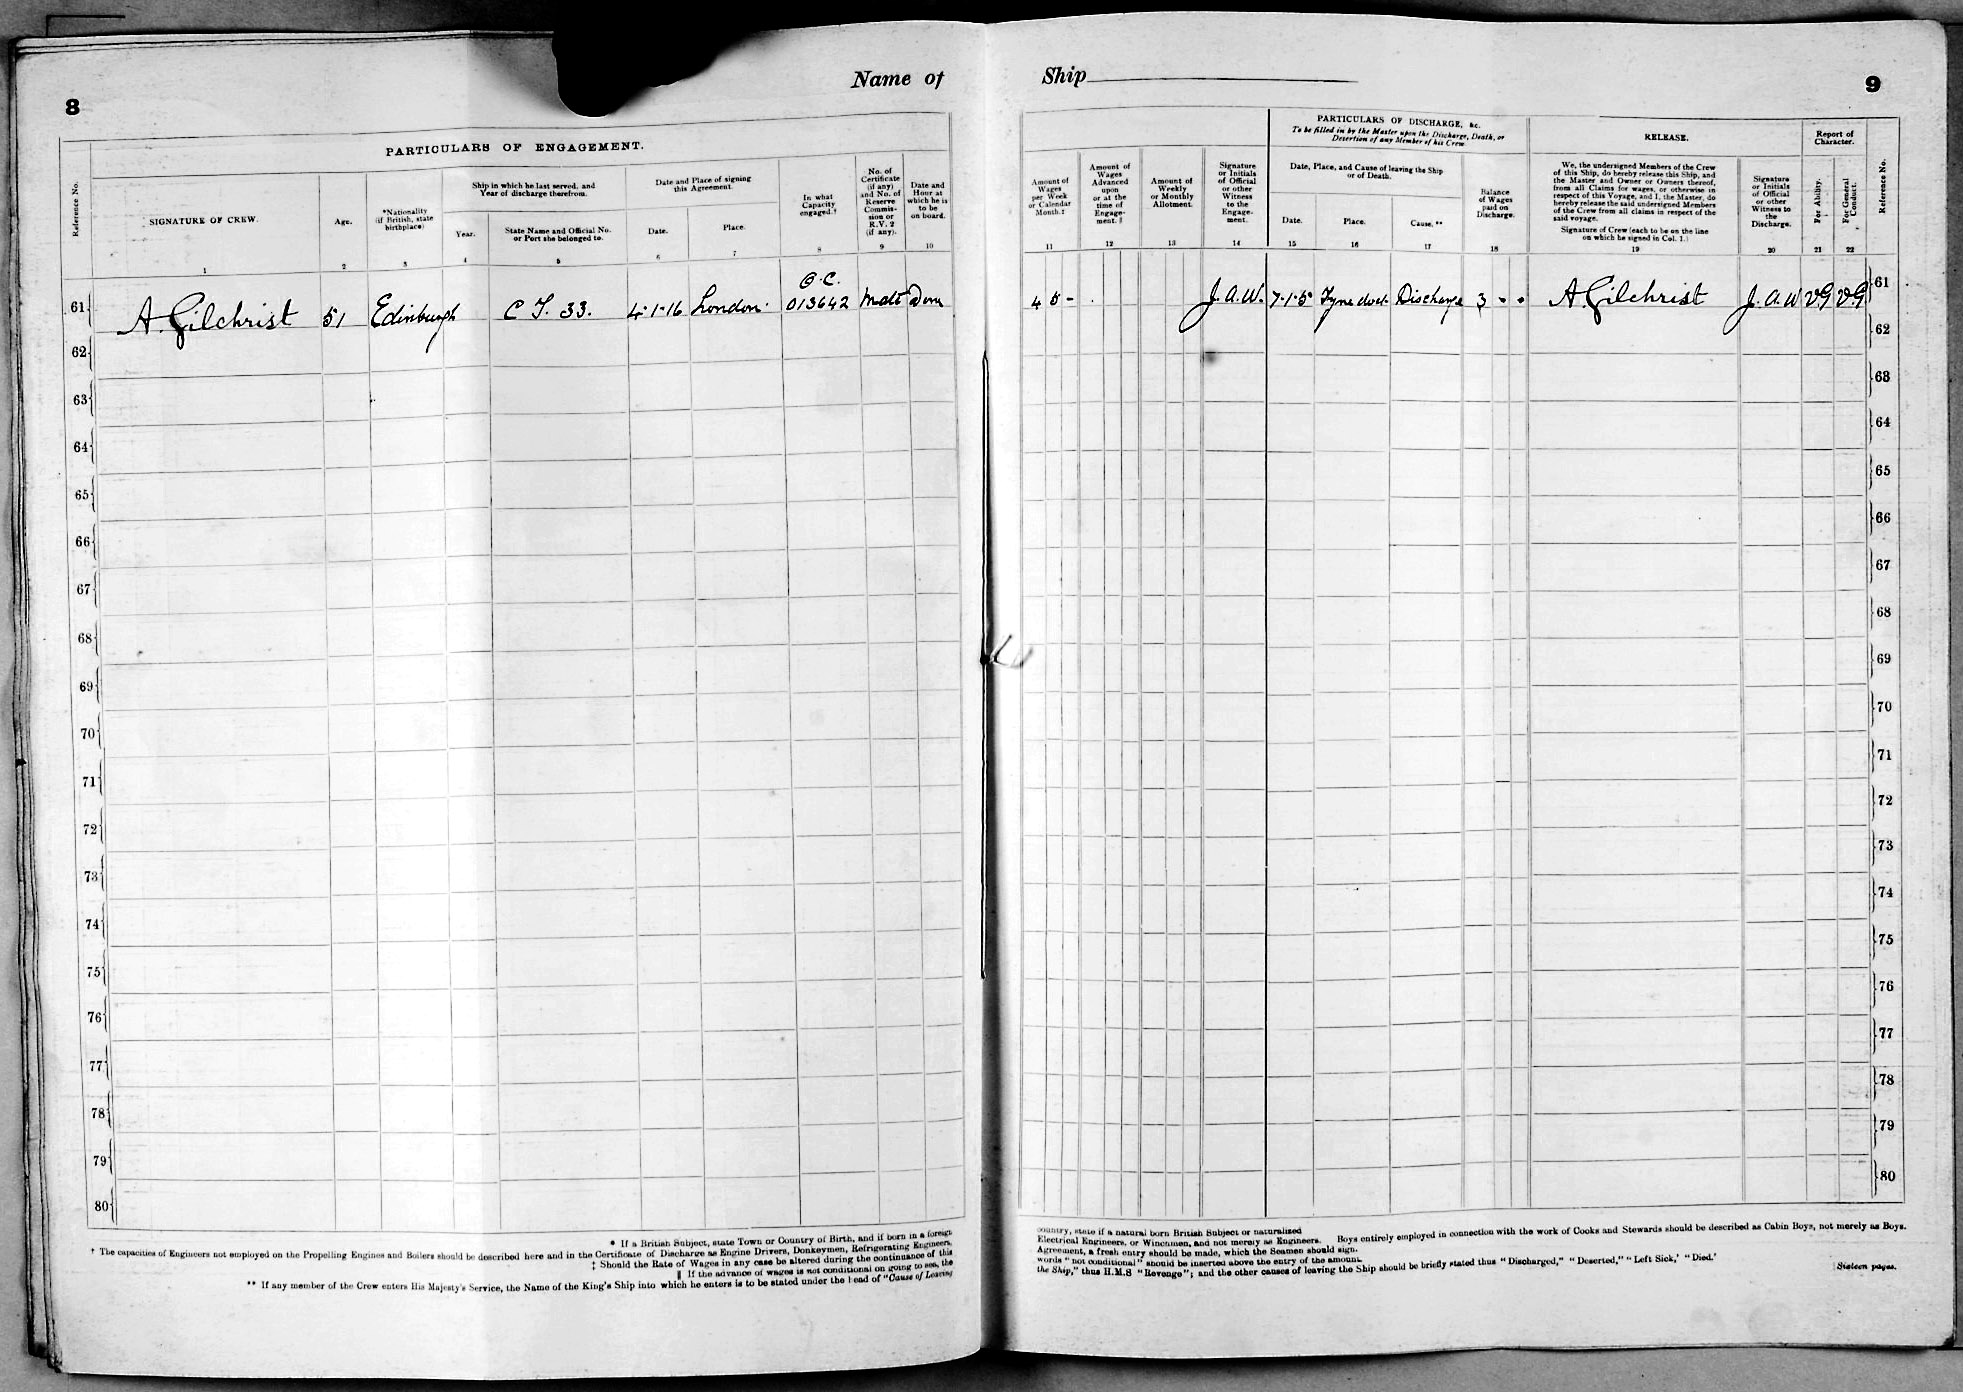 8
Name of
PARTICULARS OF ENGAGEMENT.
Reference No.
SIGNATURE OF CREW.
Age.
*Nationality
(if British, state
birthplace)
Ship in which he last served, and
Year of discharge therefrom.
Year.
State Name and Official No.
or Port she belonged to.
Date and Place of signing
this Agreement.
Date.
Place.
In what
Capacity
engaged.†
No. of
Certificate
(if any)
and No. of
Reserve
Commis-
sion or
R.V. 2
(if any).
Date and
Hour at
which he is
to be
on board.
1 2 3 4 5 6 7 8 9 10
O.C.
61 A. Gilchrist 51 Edinburgh C T. 33. 4-1-16 London 013642 Mate
62
63
64
65
66
67
68
69
70
71
72
73
74
75
76
77
78
79
80
* If a British Subject, state Town or Country of Birth, and if born in a foreign
† The capacities of Engineers not employed on the Propelling Engines and Boilers should be described here and in the Certificate of Discharge as Engine Drivers, Donkeymen, Refrigerating Engineers,
‡ Should the Rate of Wages in any case be altered during the continuance of this
‖ If the advance of wages is not conditional on going to sea, the
** If any member of the Crew enters His Majesty's Service, the Name of the King's Ship into which he enters is to be stated under the head of "Cause of Leaving
Ship
9
Amount of
Wages
per Week
or Calendar
Month.‡
Amount of
Wages
Advanced
upon
or at the
time of
Engage-
ment.‖
Amount of
Weekly
or Monthly
Allotment.
Signature
or Initials
of Official
or other
Witness
to the
Engage-
ment.
PARTICULARS OF DISCHARGE, &c.
To be filled in by the Master upon the Discharge, Death, or
Desertion of any Member of his Crew.
Date, Place, and Cause of leaving the Ship
or of Death.
Date.
Place.
Cause.**
Balance
of Wages
paid on
Discharge.
RELEASE.
We, the undersigned Members of the Crew
of this Ship, do hereby release this Ship, and
the Master and Owner or Owners thereof,
from all Claims for wages, or otherwise in
respect of this Voyage, and I, the Master, do
hereby release the said undersigned Members
of the Crew from all claims in respect of the
said voyage.
Signature of Crew (each to be on the line
on which he signed in Col. 1.)
Signature
or Initials
of Official
or other
Witness to
the
Discharge.
Report of
Character.
For Ability.
For General
Conduct.
Reference No.
11 12 13 14 15 16 17 18 19 20 21 22
4 5 - J.A.W. 7-1-5 Tyne dock Discharge 3 - - A. Gilchrist J.A.W VG VG 61
62
63
64
65
66
67
68
69
70
71
72
73
74
75
76
77
78
79
80
country, state if a natural born British Subject or naturalized
Electrical Engineers, or Winchmen, and not merely as Engineers. Boys entirely employed in connection with the work of Cooks and Stewards should be described as Cabin Boys, not merely as Boys.
Agreement, a fresh entry should be made, which the Seamen should sign.
words "not conditional" should be inserted above the entry of the amount.
the Ship," thus H.M.S "Revenge"; and the other causes of leaving the Ship should be briefly stated thus "Discharged," "Deserted," "Left Sick,' "Died.'
Sixteen pages.